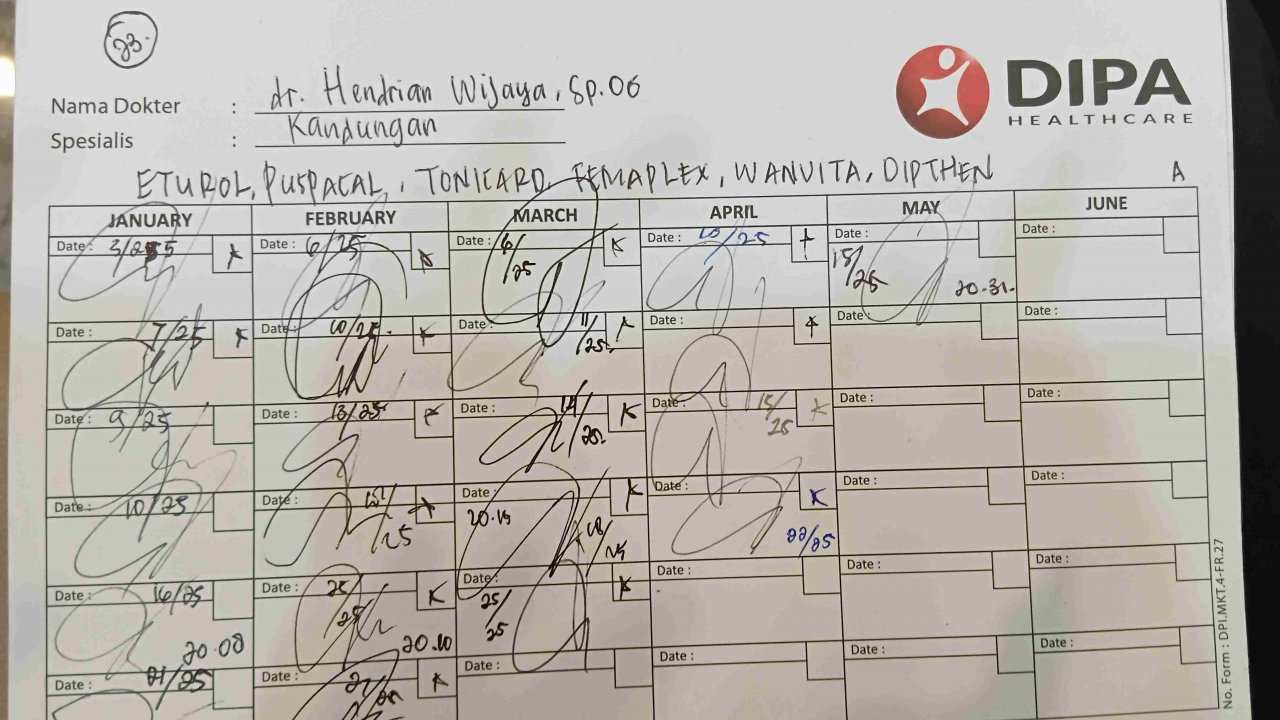 23.
Nama Dokter : dr. Hendrian Wijaya, Sp.OG
Spesialis : Kandungan
DIPA
HEALTHCARE
ETUROL, PUSPACAL, TONICARD, FEMAPLEX, WANVITA, DIPTHEN A
JANUARY FEBRUARY MARCH APRIL MAY JUNE
Date : Date : 6/25 Date : 6/25 K Date : 10/25 Date : 15/25 20.31. Date :
Date : 7/25 Date : 10/25. K Date : 11/25 Date : Date : Date :
Date : 9/25 Date : 13/25 Date : K Date : 15/25 K Date : Date :
Date : 10/25 Date : Date : 20.19 18/25 K Date : K 22/25 Date : Date :
Date : 16/25 20.08 Date : 25/25 K 20.10 Date : 25/25 K Date : Date : Date :
Date : 21/25 Date : 27/25 Date : Date : Date : Date :
No. Form : DPI.MKT.4-FR.27